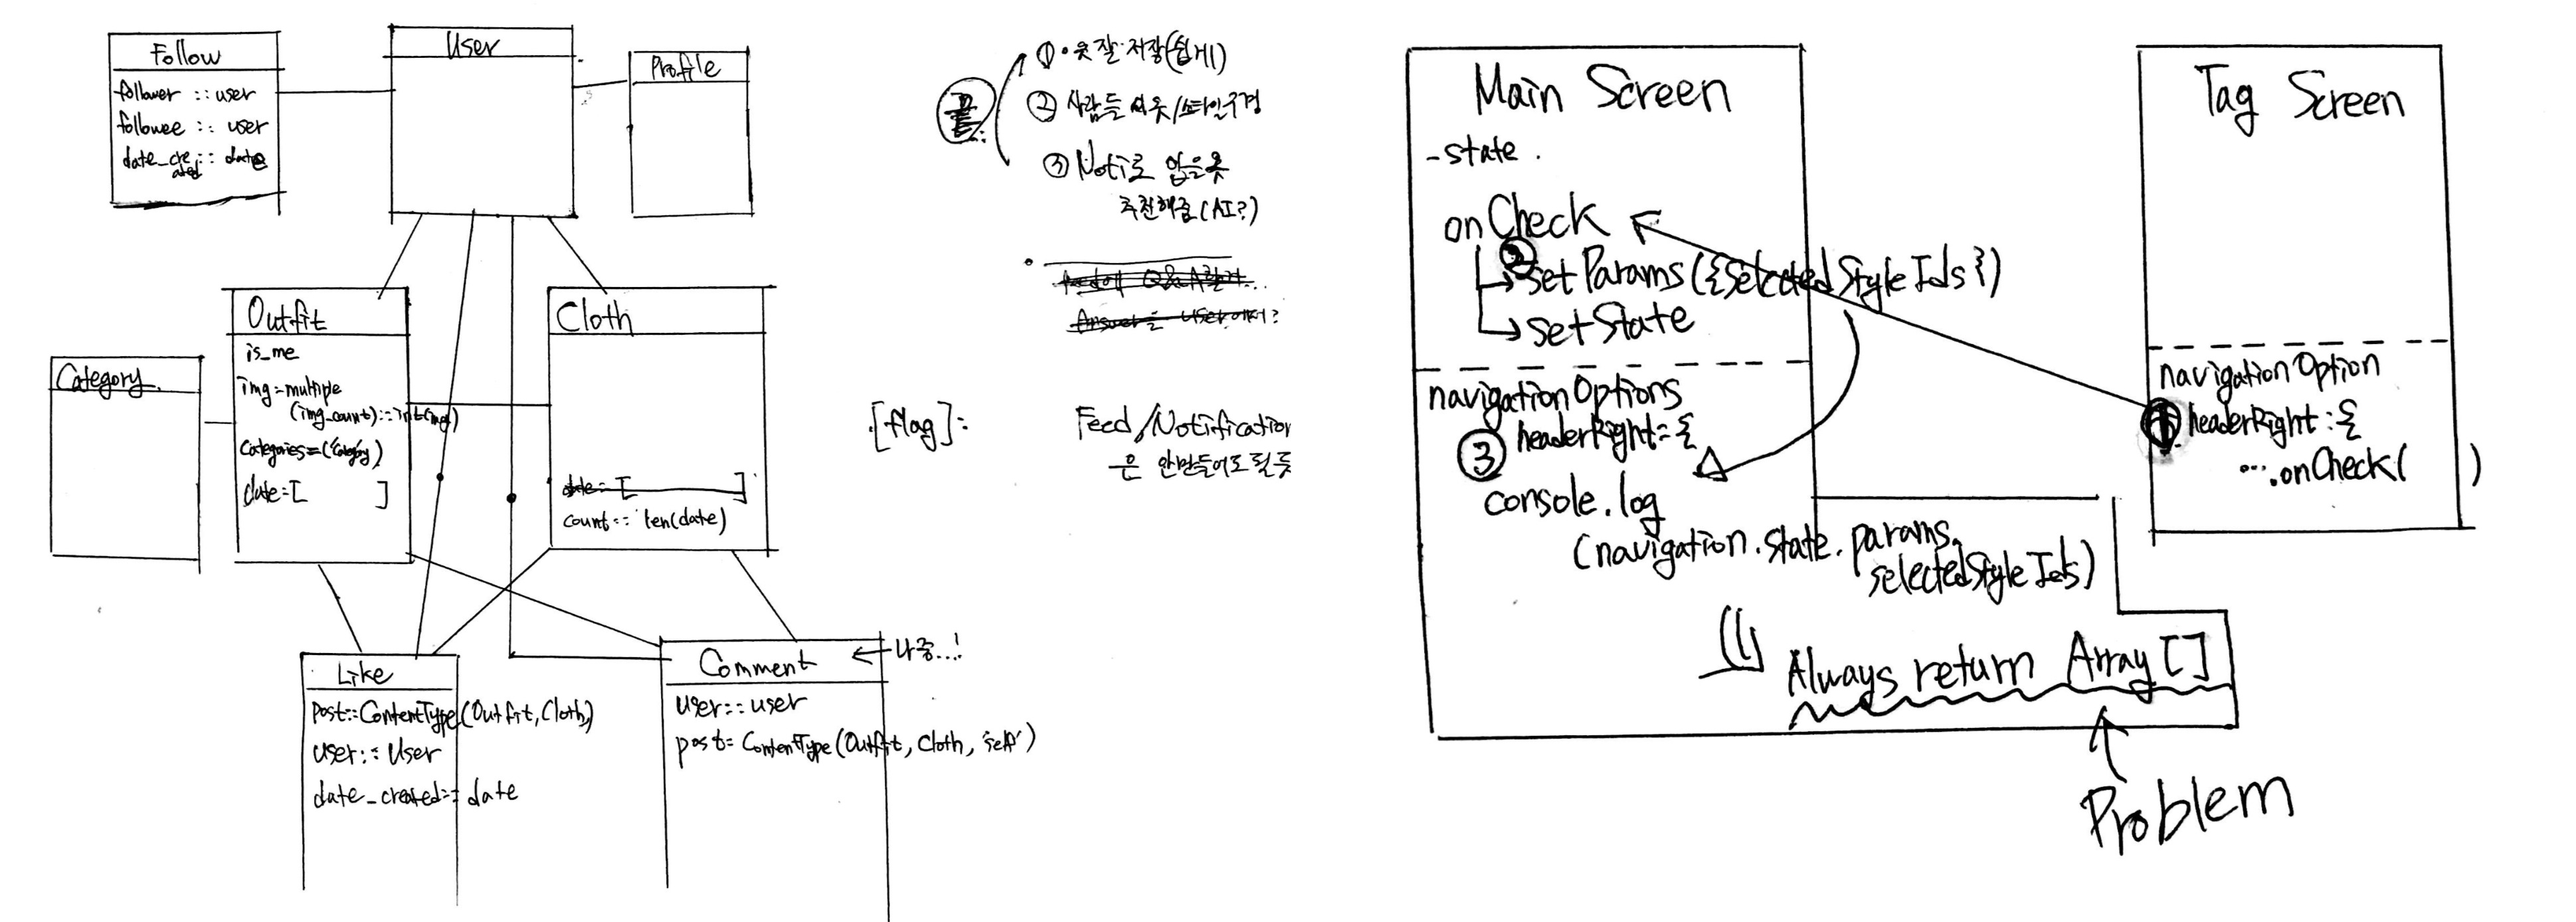 Follow
follower :: user
followee :: user
date_cre
ated :: date
User
Profile
Outfit
is_me
img = multiple
(img_count) :: int(img)
categories = ('Category')
date = [ ]
Cloth
date = [ ]
count :: len(date)
Category
Like
post :: ContentType(Outfit, Cloth)
user :: User
date_created :: date
Comment
← 나중...!
user :: user
post = ContentType(Outfit, Cloth, 'self')
끝
① • 옷 잘 저장(쉽게)
② 사람들 옷/스타일 구경
③ Noti로 입을 옷
추천해줌 (AI?)
Answer는 user에서?
[flag]:
Feed/Notification
은 안만들어도 될듯
Main Screen
- state.
onCheck
② setParams({selectedStyleIds})
setState
navigationOptions
③ headerRight = {
console.log
(navigation.state.params.
selectedStyleIds)
Always return Array []
Problem
Tag Screen
navigationOption
① headerRight : {
... .onCheck( )